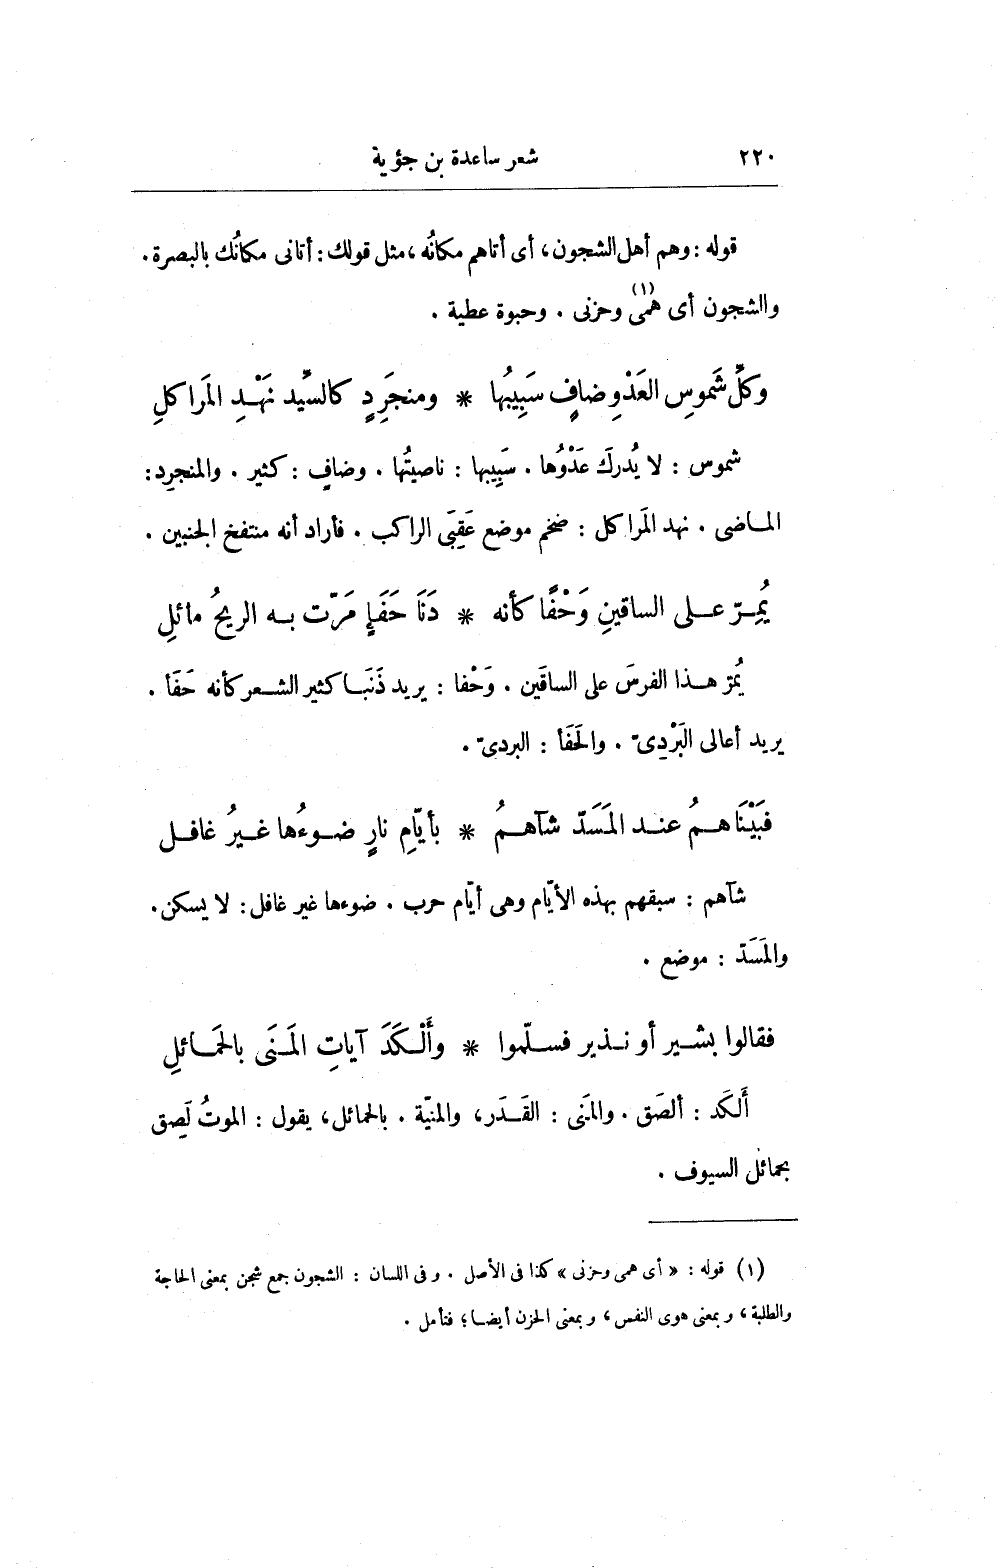 ٢٢٠ شعر ساعدة بن جؤية
قوله : وهم أهل الشجون، أى أتاهم مكانُه ،مثل قولك : أتانى مكانُك بالبصرة.
واالشجون أى همّى(١) وحزنى . وحبوة عطية .
وكلُّ شَموسِ العَدْوِ ضافٍ سَبِيبُها * ومنجَرِدٍ كالسِّيد نَهْـدِ المَراكلِ
شموس : لا يُدركَ عَدْوُها . سَبِيبها : ناصيتُها . وضافٍ : كثير . والمنجرِد :
المـاضى . نهد المَراكل : ضخم موضع عَقِبَى الراكب . فأراد أنه منتفخ الجنبين .
يُمِـرّ عـلى الساقينِ وَحْفًا كأنه * دَنَا حَفَإٍ مَرّت بـه الريحُ مائلِ
يُمرّ هـذا الفرسَ على الساقَين . وَحْفا : يريد ذَنَبـا كثير الشـعر كأنه حَفَأ .
يريد أعالى البَرْدِىّ . والحَفَأ : البردىّ .
فبَيْنَا هـمُ عنـد المَسَدّ شآهـمُ * بأيّامِ نارٍ ضـوءُها غـيرُ غافـل
شآهم : سبقهم بهذه الأيّام وهى أيّام حرب . ضوءها غير غافل : لا يسكن.
والمَسَدّ : موضع .
فقالوا بشـير أو نـذير فسـلّموا * وأَلْـكَدَ آياتِ المَـنَى بالحَمـائلِ
أَلكَد : ألصَق . والمَنى : القَـدَر، والمنيّة . بالحمائل، يقول : الموتُ لَصِق
بحمائل السيوف .
(١) قوله : « أى همى وحزنى » كذا فى الأصل . وفى اللسان : الشجون جمع شجن بمعنى الحاجة
والطلبة ، وبمعنى هوى النفس ، وبمعنى الحزن أيضـا ؛ فتأمل .